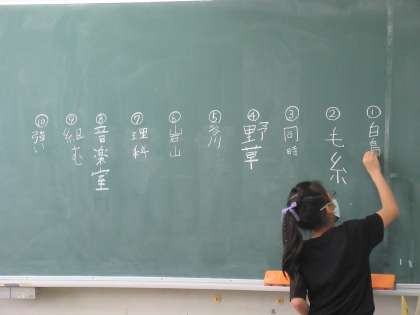 ① 白鳥
② 毛糸
③ 同時
④ 野草
⑤ 谷川
⑥ 岩山
⑦ 理科
⑧ 音楽室
⑨ 組む
⑩ 強い